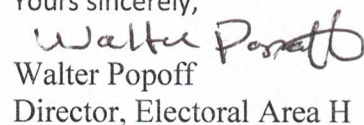 Yours sincerely,
Walter Popoff
Walter Popoff
Director, Electoral Area H